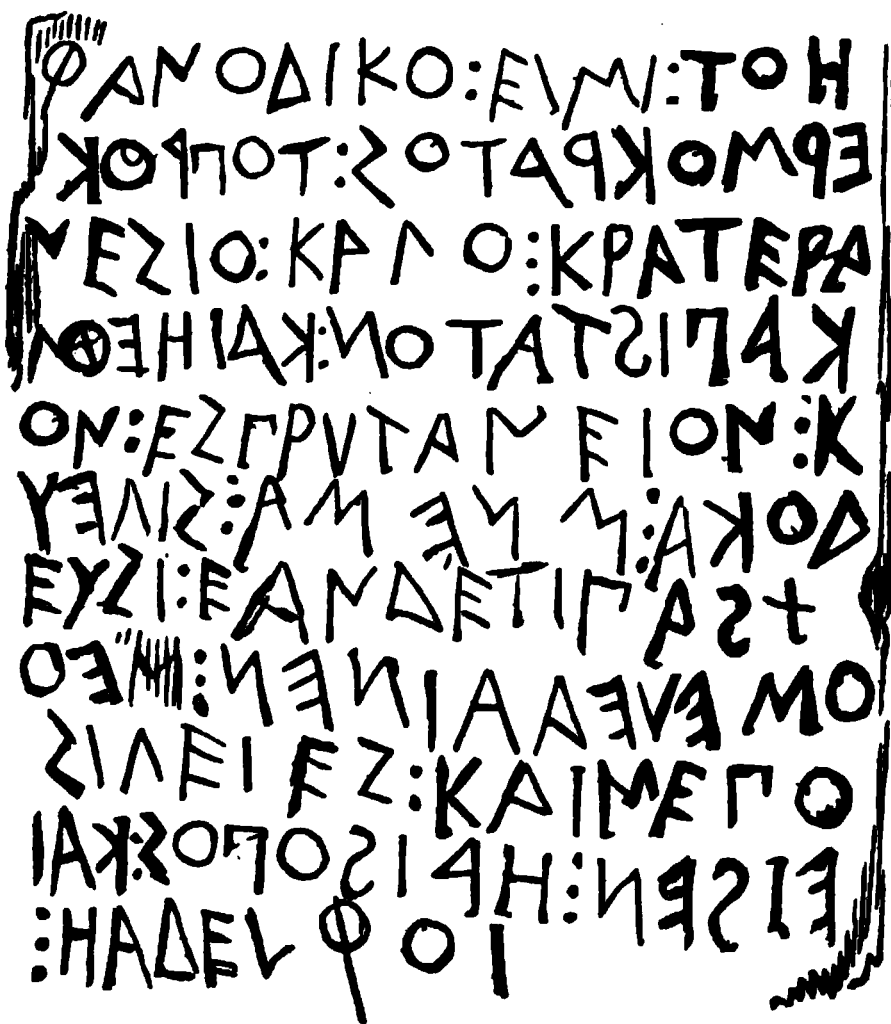 ΦΑΝΟΔΙΚΟ:ΕΙΜΙ:ΤΟΗ
ΕΡΜΟΚΡΑΤΟΣ:ΤΟΠΡΟΚΟ
ΝΕΣΙΟ:ΚΑΓΟ:ΚΡΑΤΕΡΑ
ΚΑΠΙΣΤΑΤΟΝ:ΚΑΙΗΕΘΜ
ΟΝ:ΕΣΠΡΥΤΑΝΕΙΟΝ:Κ
ΔΟΚΑ:ΜΝΕΜΑ:ΣΙΓΕΥ
ΕΥΣΙ:ΕΑΝΔΕΤΙΠΑΣ+
ΟΜΕΛΕΔΑΙΝΕΝ:ΜΕΟ
ΣΙΓΕΙΕΣ:ΚΑΙΜΕΠΟ
ΕΙΣΕΝ:ΗΑΙΣΟΠΟΣ:ΚΑΙ
:ΗΑΔΕΛΦΟΙ